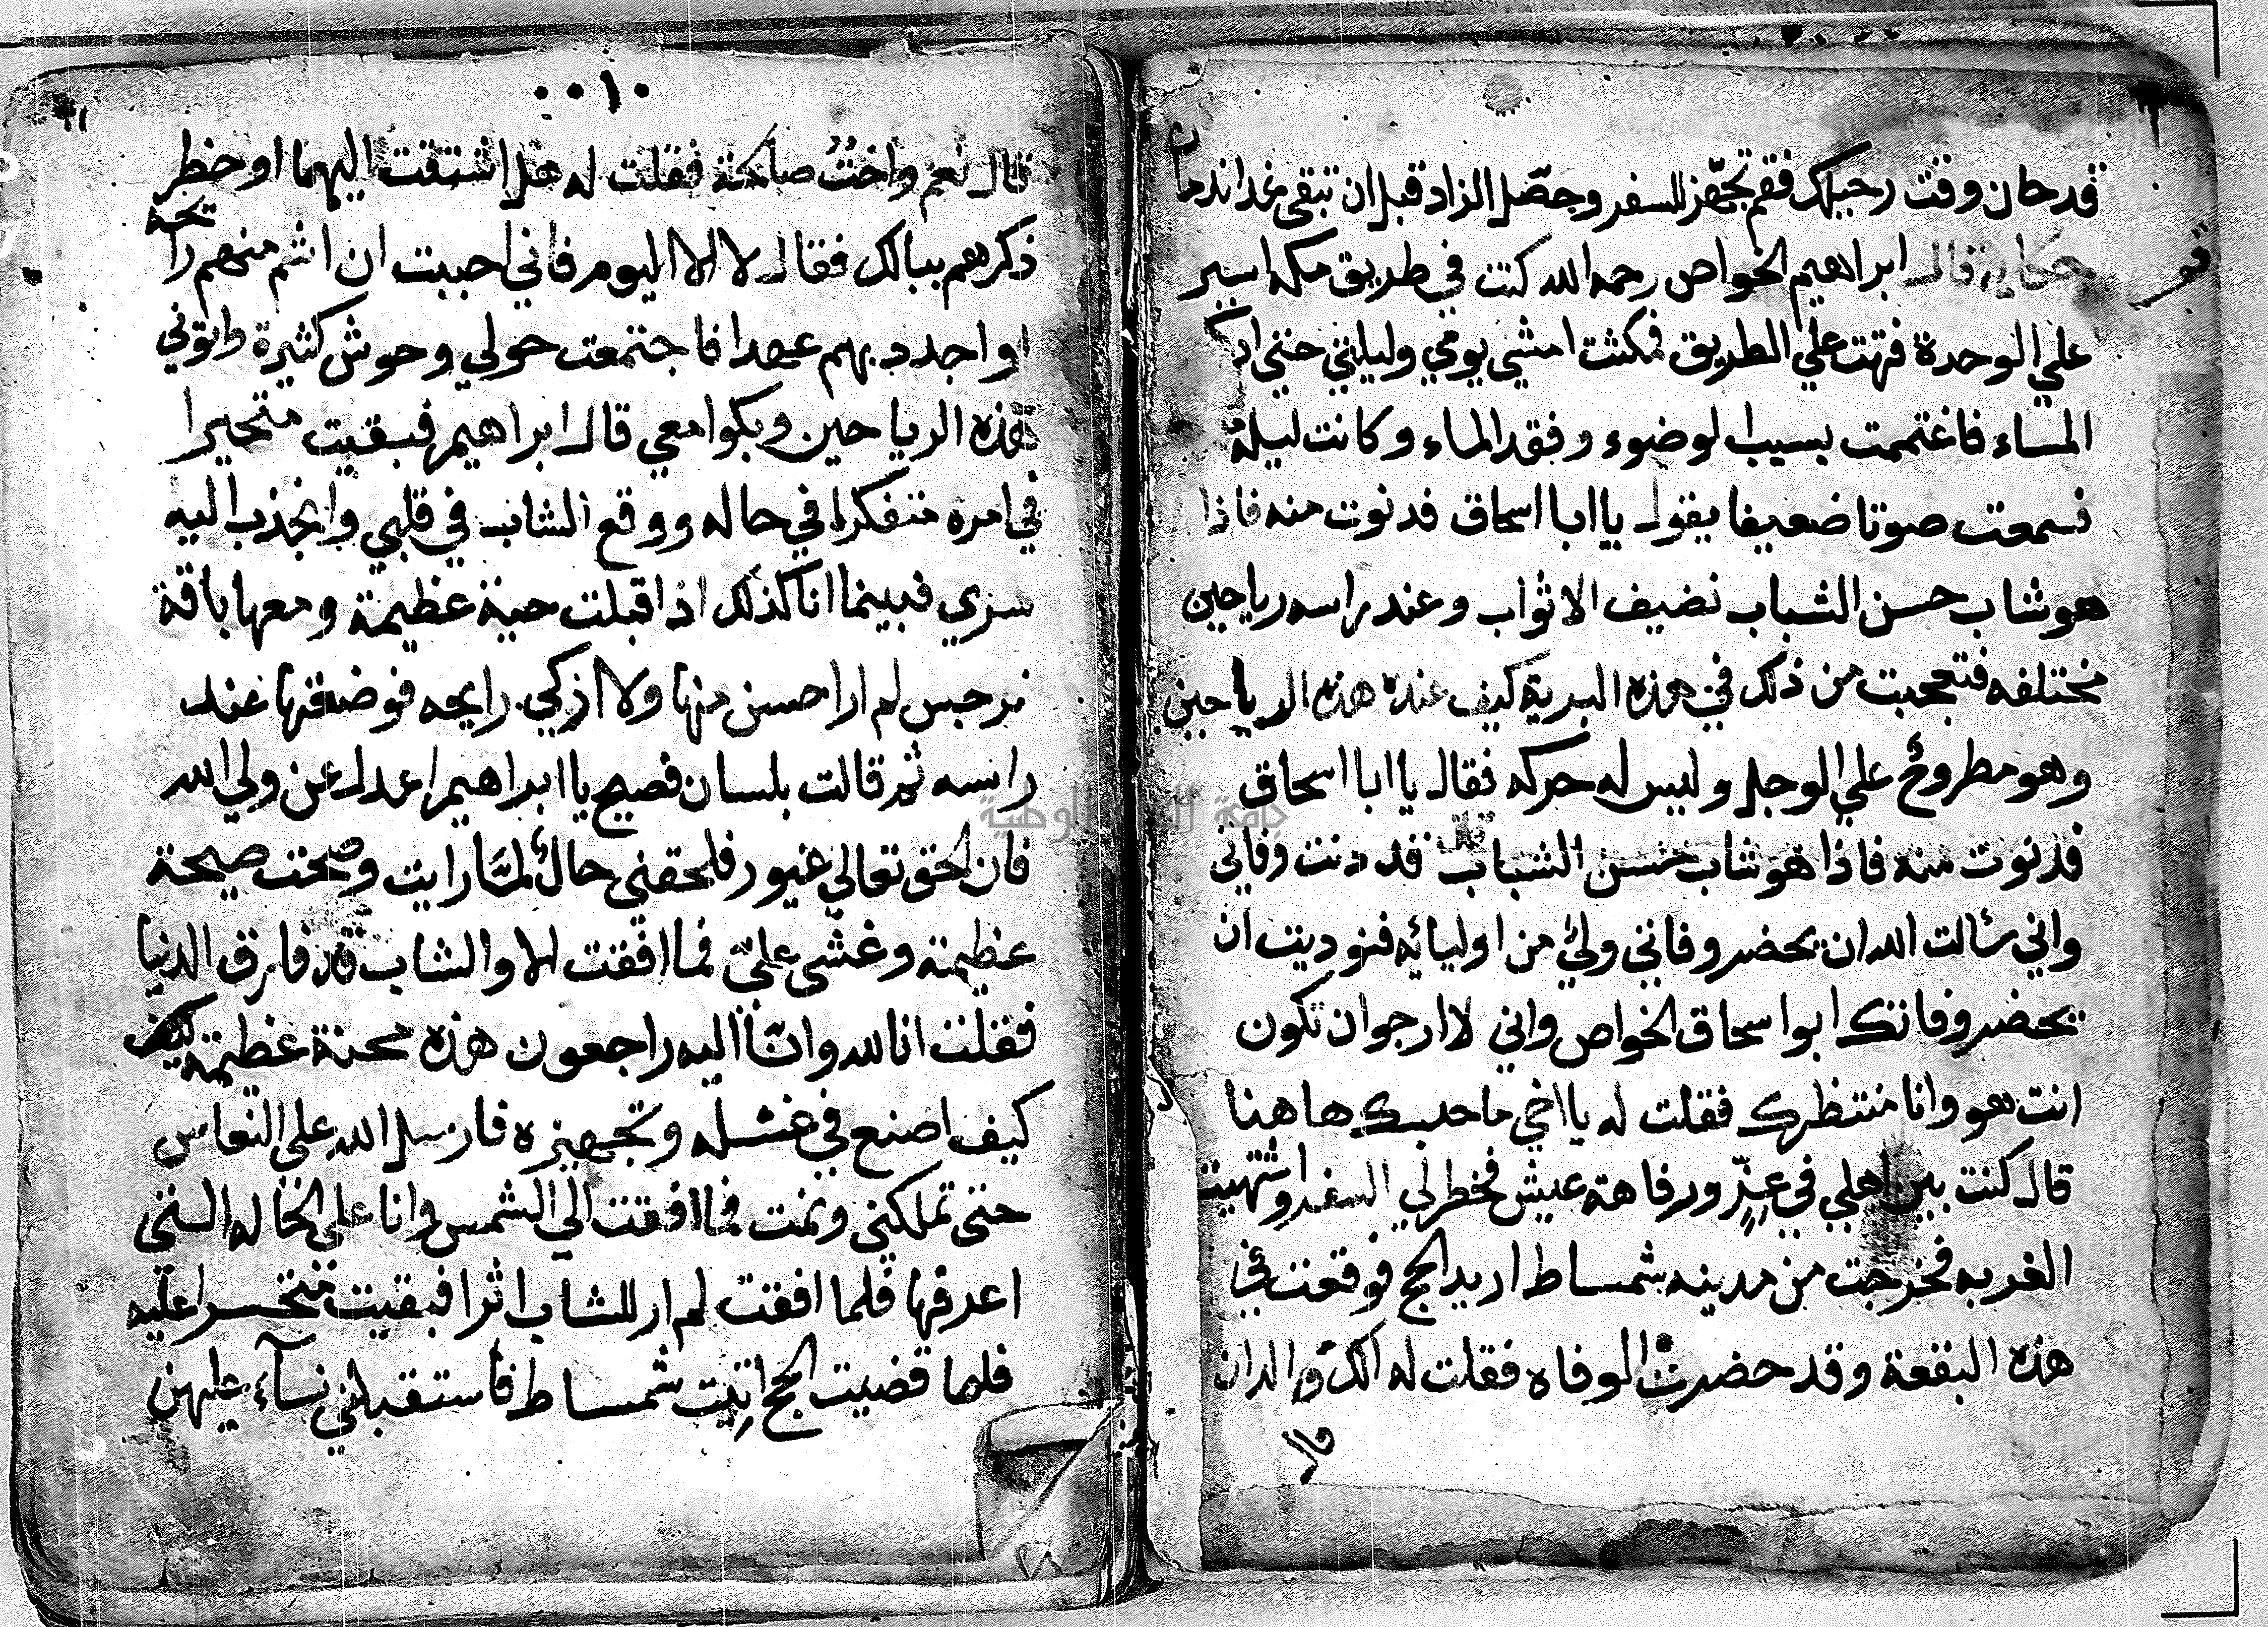 قد حان وقت رحيلك فقم تجهز للسفر وحصّل الزاد قبل ان تبقى غدا ندمان
حكاية قال ابراهيم الخواص رحمه الله كنت في طريق مكه اسير
علي الوحدة فهت علي الطريق فمكثت امشي يومي وليلتي حتي ادركني
المساء فاغتممت بسبب الوضوء وفقد الماء وكانت ليلة
فسمعت صوتا ضعيفا يقول يا ابا اسحاق فدنوت منه فاذا
هو شاب حسن الشباب نضيف الاثواب وعند راسه رياحين
مختلفه فتعجبت من ذلك في هذه البرية كيف عنده هذه الرياحين
وهو مطروح علي الوجل وليس له حركه فقال يا ابا اسحاق
فدنوت منه فاذا هو شاب حسن الشباب قد دنت وفاتي
واني سالت الله ان يحضر وفاتي ولي من اوليائه فنوديت ان
يحضر وفاتك ابو اسحاق الخواص واني لا ارجوا ان تكون
انت هو وانا منتظرك فقلت له يا اخي ما حبسك هاهنا
قال كنت بين اهلي في عزّ ورفاهة عيش فخطر لي السفر واشتهيت
الغربه فخرجت من مدينه شمساط اريد الحج فوقعت في
هذه البقعة وقد حضرت الوفاه فقلت له الك والدان
قال
١٠
قال نعم واختٌ صالحة فقلت له هل اشتقت اليهما او خطر
ذكرهم ببالك فقال لا الا اليوم فاني احببت ان اشم منهم رايحة
او اجدد بهم عهدا فاجتمعت حولي وحوش كثيرة واتوني
بهذه الرياحين وبكوا معي قال ابراهيم فبقيت متحيرا
في امره متفكرا في حاله ووقع الشاب في قلبي وانجذب اليه
سري فبينما انا كذلك اذ اقبلت حية عظيمة ومعها باقة
نرجس لم ار احسن منها ولا ازكي رايحه فوضعتها عند
راسه ثم قالت بلسان فصيح يا ابراهيم اعدل عن ولي الله
فان الحق تعالي غيور فلحقني حالٌ لمّا رايت وصحت صيحة
عظيمة وغشي عليّ فما افقت الا والشاب قد فارق الدنيا
فقلت انا لله وانّا اليه راجعون هذه محنة عظيمة كيف
كيف اصنع في غسله وتجهيزه فارسل الله على النعاس
حتى تملكني ونمت فما افقت الي الشمس وانا علي الحاله التي
اعرفها فلما افقت لم ار للشاب اثرا فبقيت متحسرا عليه
فلما قضيت الحج اتيت شمساط فاستقبلني نسآء عليهن